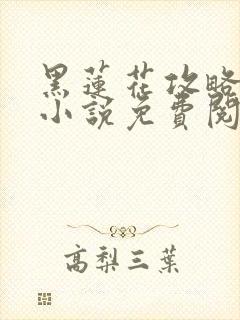 黑蓮花攻略
小說免費閱
高梨三葉